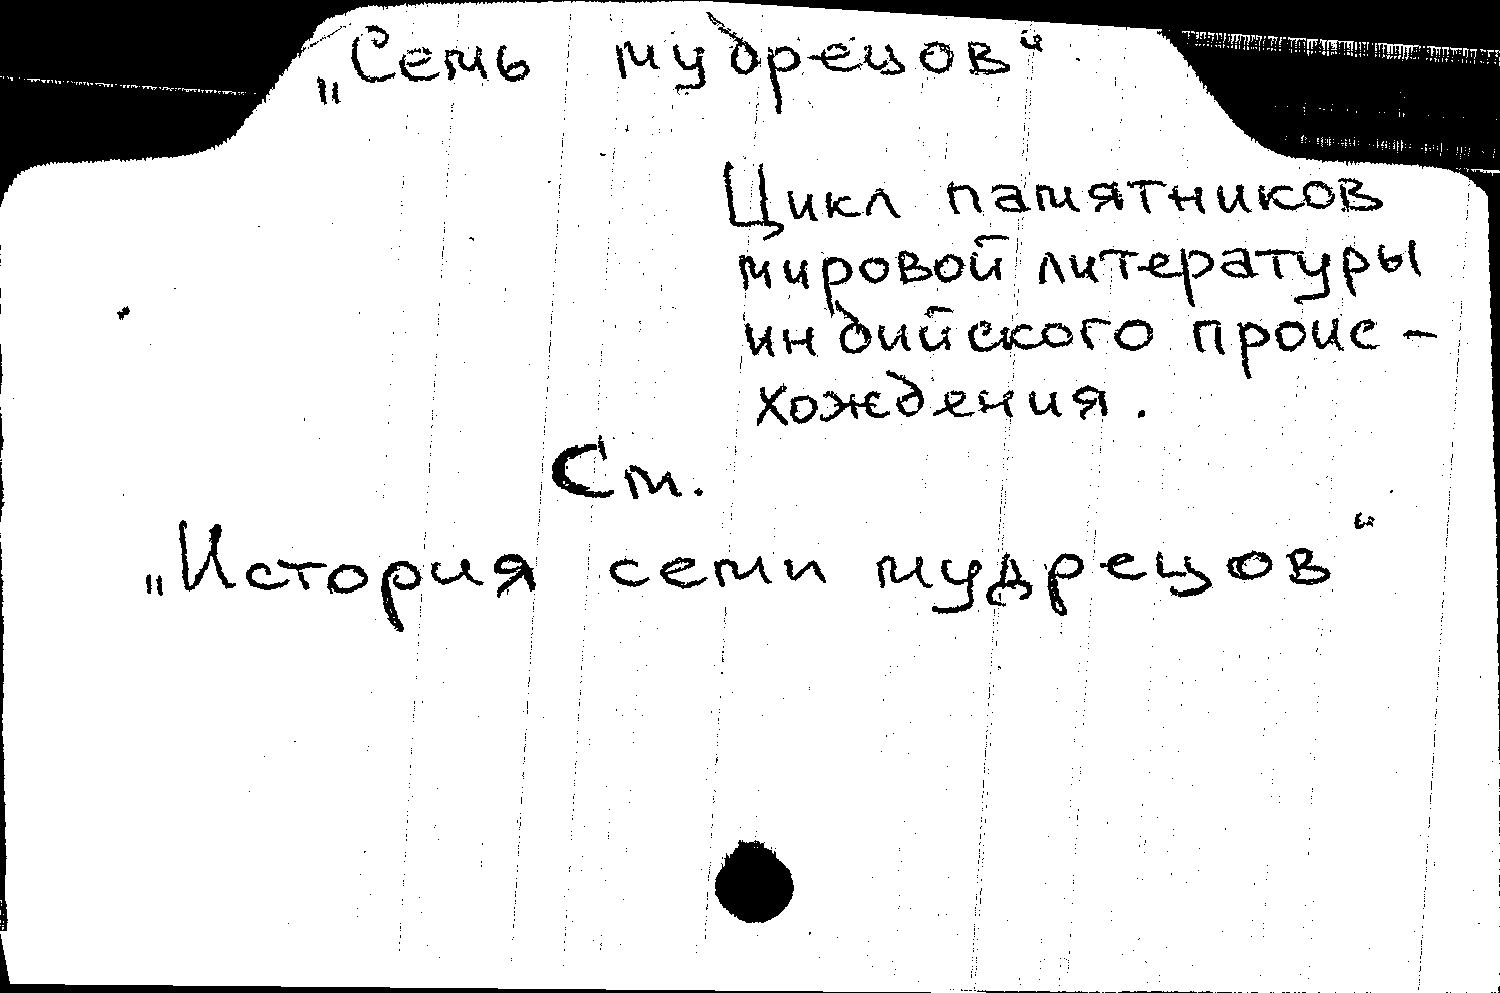 „Семь мудрецов“
Цикл памятников
мировой литературы
индийского проис-
хождения.
См.
„История семи мудрецов“